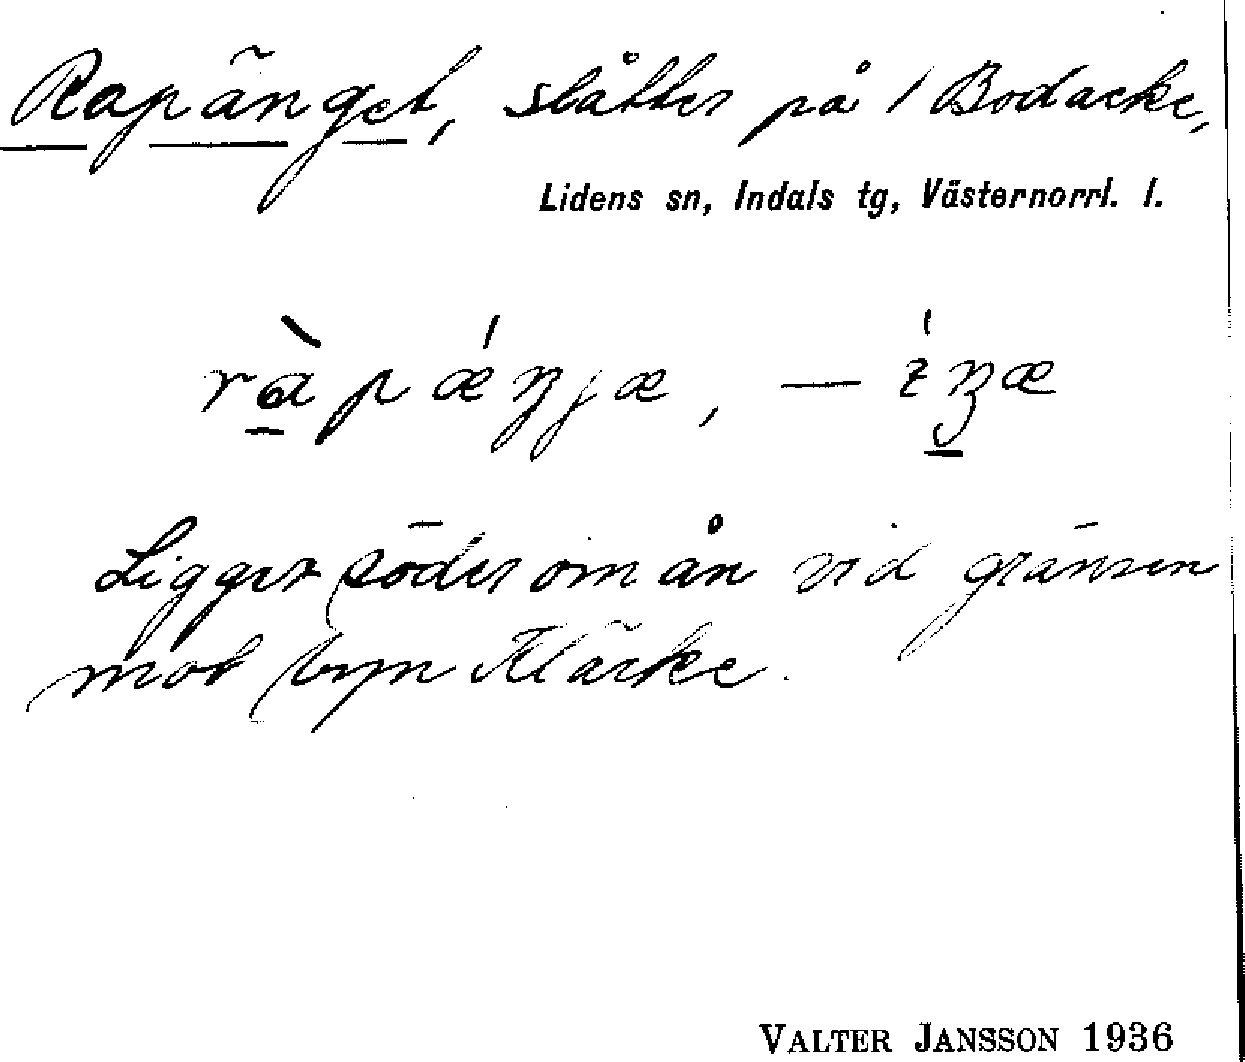 Rapänget, slåtter på 1 Bodacke,
Lidens sn, Indals tg, Västernorrl. l.
Ligger söder om ån vid gränsen
mot byn Kläcke.
VALTER JANSSON 1936